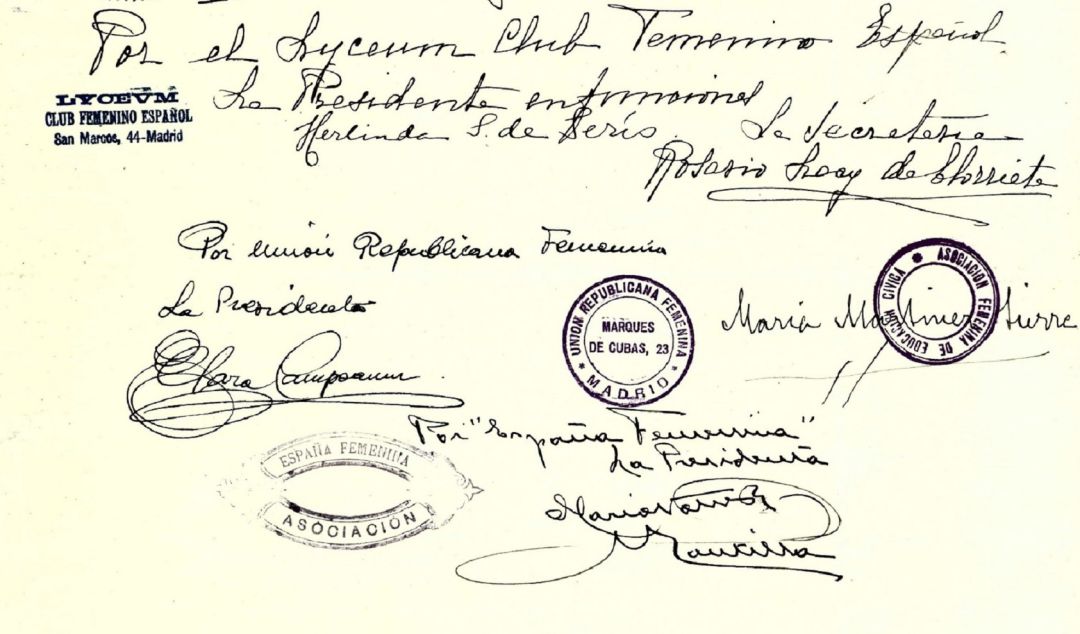 Por el Lyceum Club Femenino Español
LYCEVM
CLUB FEMENINO ESPAÑOL
San Marcos, 44-Madrid
La Presidenta en funciones
Herlinda S. de Serís.
La Secretaria
Rosario Lacy de Elorrieta
Por Unión Republicana Femenina
La Presidenta
Clara Campoamor
UNION REPUBLICANA FEMENINA
MARQUES
DE CUBAS, 23
* MADRID *
María Martínez Sierra
ASOCIACIÓN FEMENINA DE EDUCACIÓN CÍVICA
Por "España Femenina"
La Presidenta
ESPAÑA FEMENINA
ASOCIACIÓN